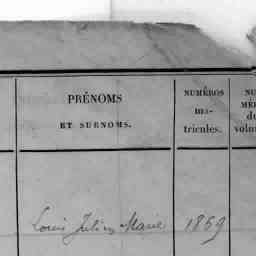 PRÉNOMS
ET SURNOMS.
NUMÉROS
ma-
tricules.
NU
MÉR
du
volum
Louis Julien Marie 1869